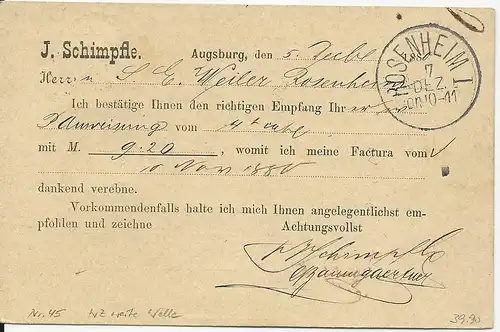 J. Schimpfle. Augsburg, den 5.
ROSENHEIM I.
7
DEZ.
10-11
Herrn S. E. Weiler Rosenheim
Ich bestätige Ihnen den richtigen Empfang Ihrer
P Anweisung vom 4
mit M. 9.20, womit ich meine Factura vom
10 Nov 1880
dankend verebne.
Vorkommendenfalls halte ich mich Ihnen angelegentlichst em-
pfohlen und zeichne Achtungsvollst
J Schimpfle
Nr. 45 WZ weite Welle 39.90